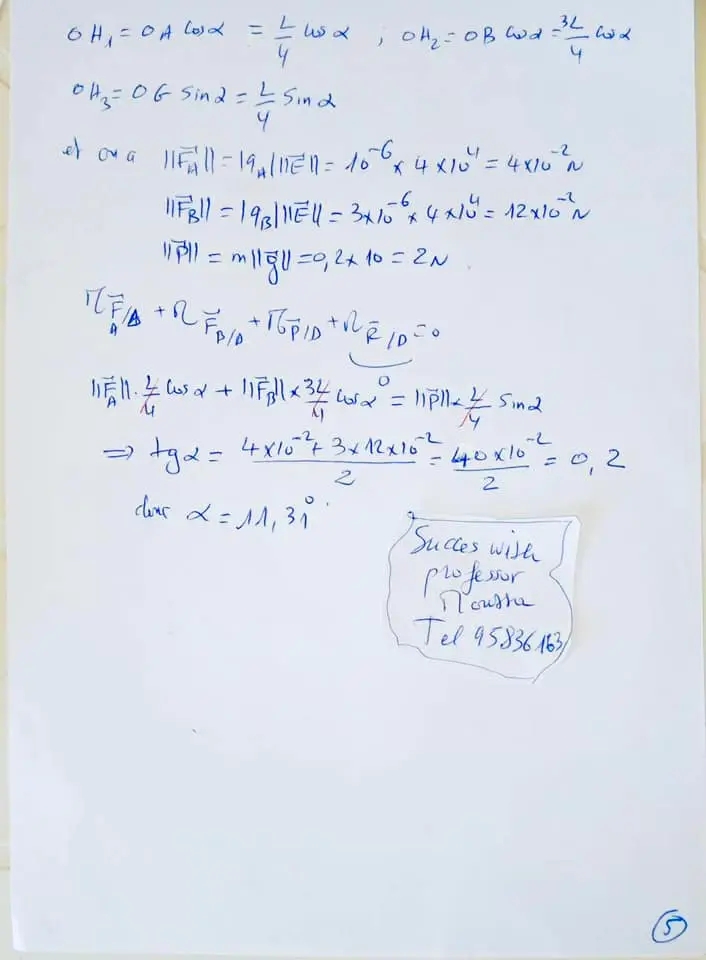 OH₁ = OA cosα = L/4 cosα , OH₂ = OB cosα = 3L/4 cosα
OH₃ = OG sinα = L/4 sinα
et on a ||F⃗_A|| = |q_A| ||E⃗|| = 10⁻⁶ × 4×10⁴ = 4×10⁻² N
||F⃗_B|| = |q_B| ||E⃗|| = 3×10⁻⁶ × 4×10⁴ = 12×10⁻² N
||P⃗|| = m||g⃗|| = 0,2 × 10 = 2N
M F⃗_A/Δ + M F⃗_B/Δ + M P⃗/Δ + M R⃗/Δ = 0
0
||F⃗_A||. L/4 cosα + ||F⃗_B|| × 3L/4 cosα = ||P⃗|| × L/4 sinα
⇒ tgα = (4×10⁻² + 3×12×10⁻²)/2 = (40×10⁻²)/2 = 0,2
donc α = 11,31°.
Succes with
professor
Moussa
Tel 95836163
5